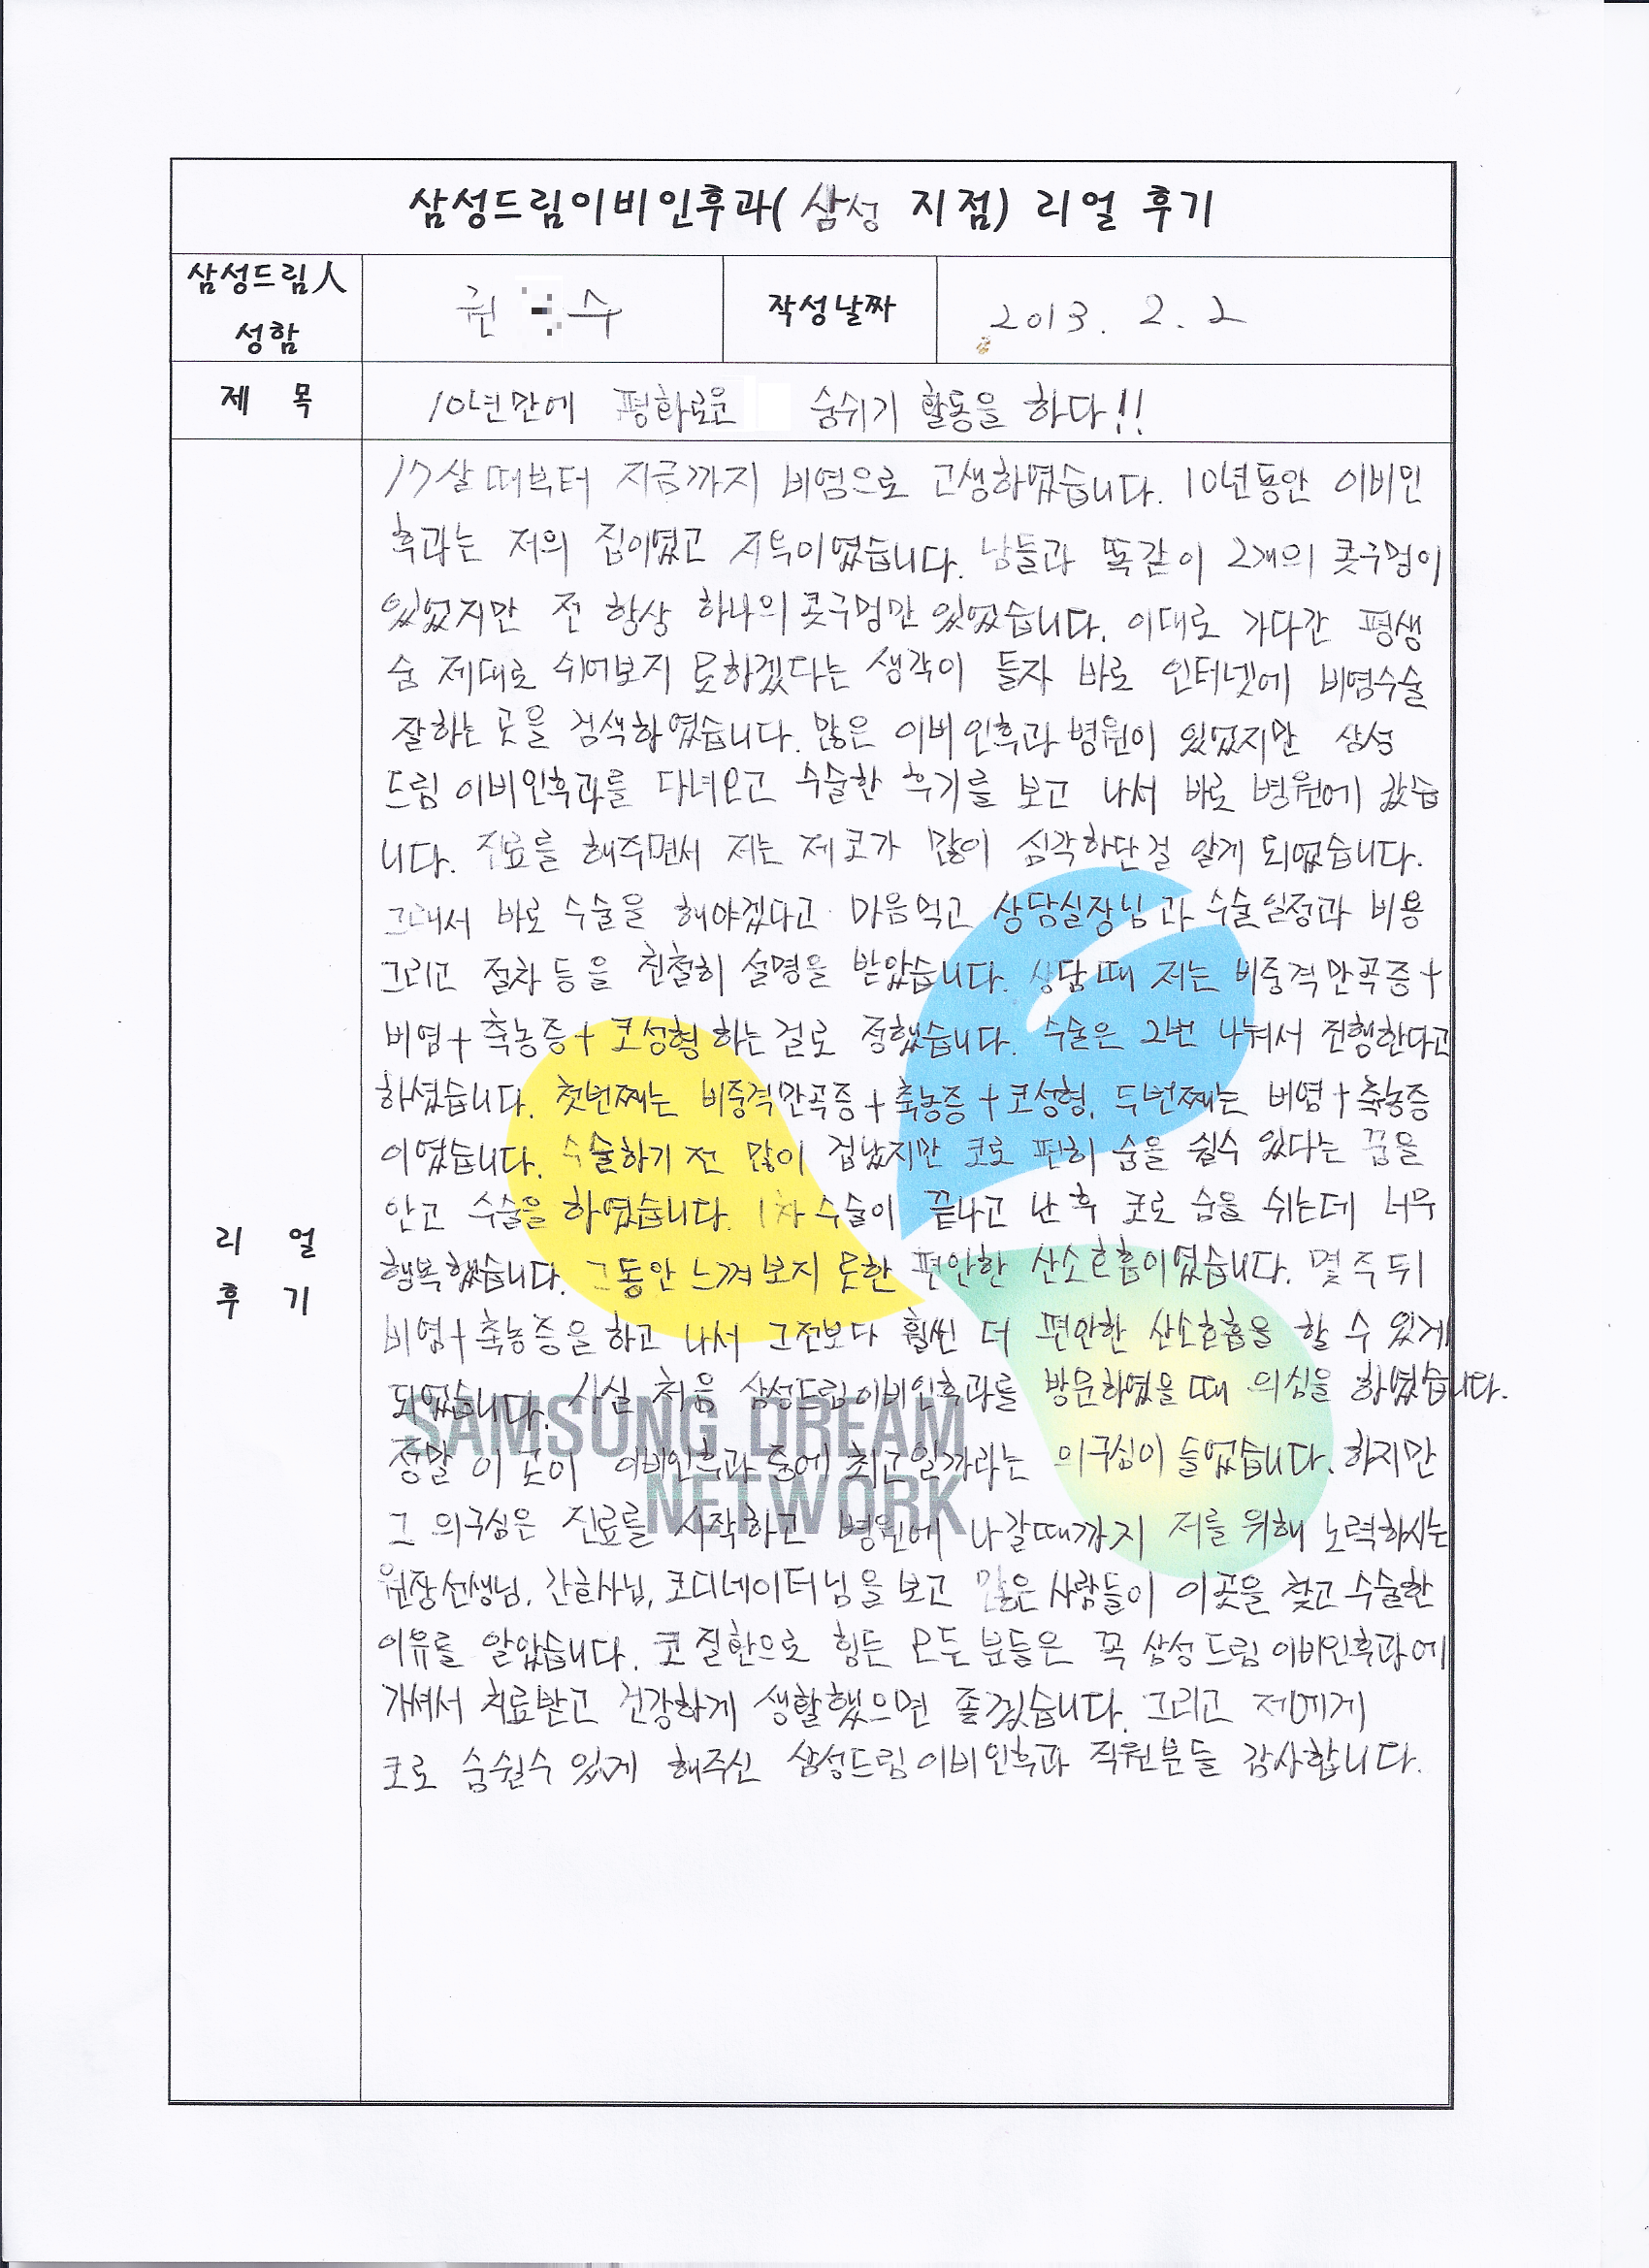 삼성드림이비인후과( 삼성 지점) 리얼 후기
삼성드림人 성함
권 수
작성날짜
2013. 2. 2
제 목
10년만에 평화로운 숨쉬기 활동을 하다!!
리 얼 후 기
17살때부터 지금까지 비염으로 고생하였습니다. 10년동안 이비인
후과는 저의 집이였고 지옥이였습니다. 남들과 똑같이 2개의 콧구멍이
있었지만 전 항상 하나의 콧구멍만 있었습니다. 이대로 가다간 평생
숨 제대로 쉬어보지 못하겠다는 생각이 들자 바로 인터넷에 비염수술
잘하는 곳을 검색하였습니다. 많은 이비인후과 병원이 있었지만 삼성
드림 이비인후과를 다녀오고 수술한 후기를 보고 나서 바로 병원에 갔습
니다. 진료를 해주면서 저는 제 코가 많이 심각하단걸 알게 되었습니다.
그래서 바로 수술을 해야겠다고 마음먹고 상담실장님과 수술일정과 비용
그리고 절차 등을 친절히 설명을 받았습니다. 상담때 저는 비중격만곡증+
비염+축농증+코성형 하는걸로 정했습니다. 수술은 2번 나눠서 진행한다고
하셨습니다. 첫번째는 비중격만곡증+축농증+코성형, 두번째는 비염+축농증
이였습니다. 수술하기 전 많이 겁났지만 코로 편히 숨을 쉴수 있다는 꿈을
안고 수술을 하였습니다. 1차 수술이 끝나고 난 후 코로 숨을 쉬는데 너무
행복했습니다. 그동안 느껴보지 못한 편안한 산소호흡이였습니다. 몇주 뒤
비염+축농증을 하고 나서 그전보다 훨씬 더 편안한 산소호흡을 할 수 있게
되었습니다. 사실 처음 삼성드림이비인후과를 방문하였을때 의심을 하였습니다.
정말 이 곳이 이비인후과 중에 최고일까라는 의구심이 들었습니다. 하지만
그 의구심은 진료를 시작하고 병원에 나갈때까지 저를 위해 노력하시는
원장선생님, 간호사님, 코디네이터님을 보고 많은 사람들이 이곳을 찾고 수술한
이유를 알았습니다. 코 질환으로 힘든 모든 분들은 꼭 삼성드림 이비인후과에
가셔서 치료받고 건강하게 생활했으면 좋겠습니다. 그리고 저에게
코로 숨쉴수 있게 해주신 삼성드림이비인후과 직원분들 감사합니다.
SAMSUNG DREAM
NETWORK